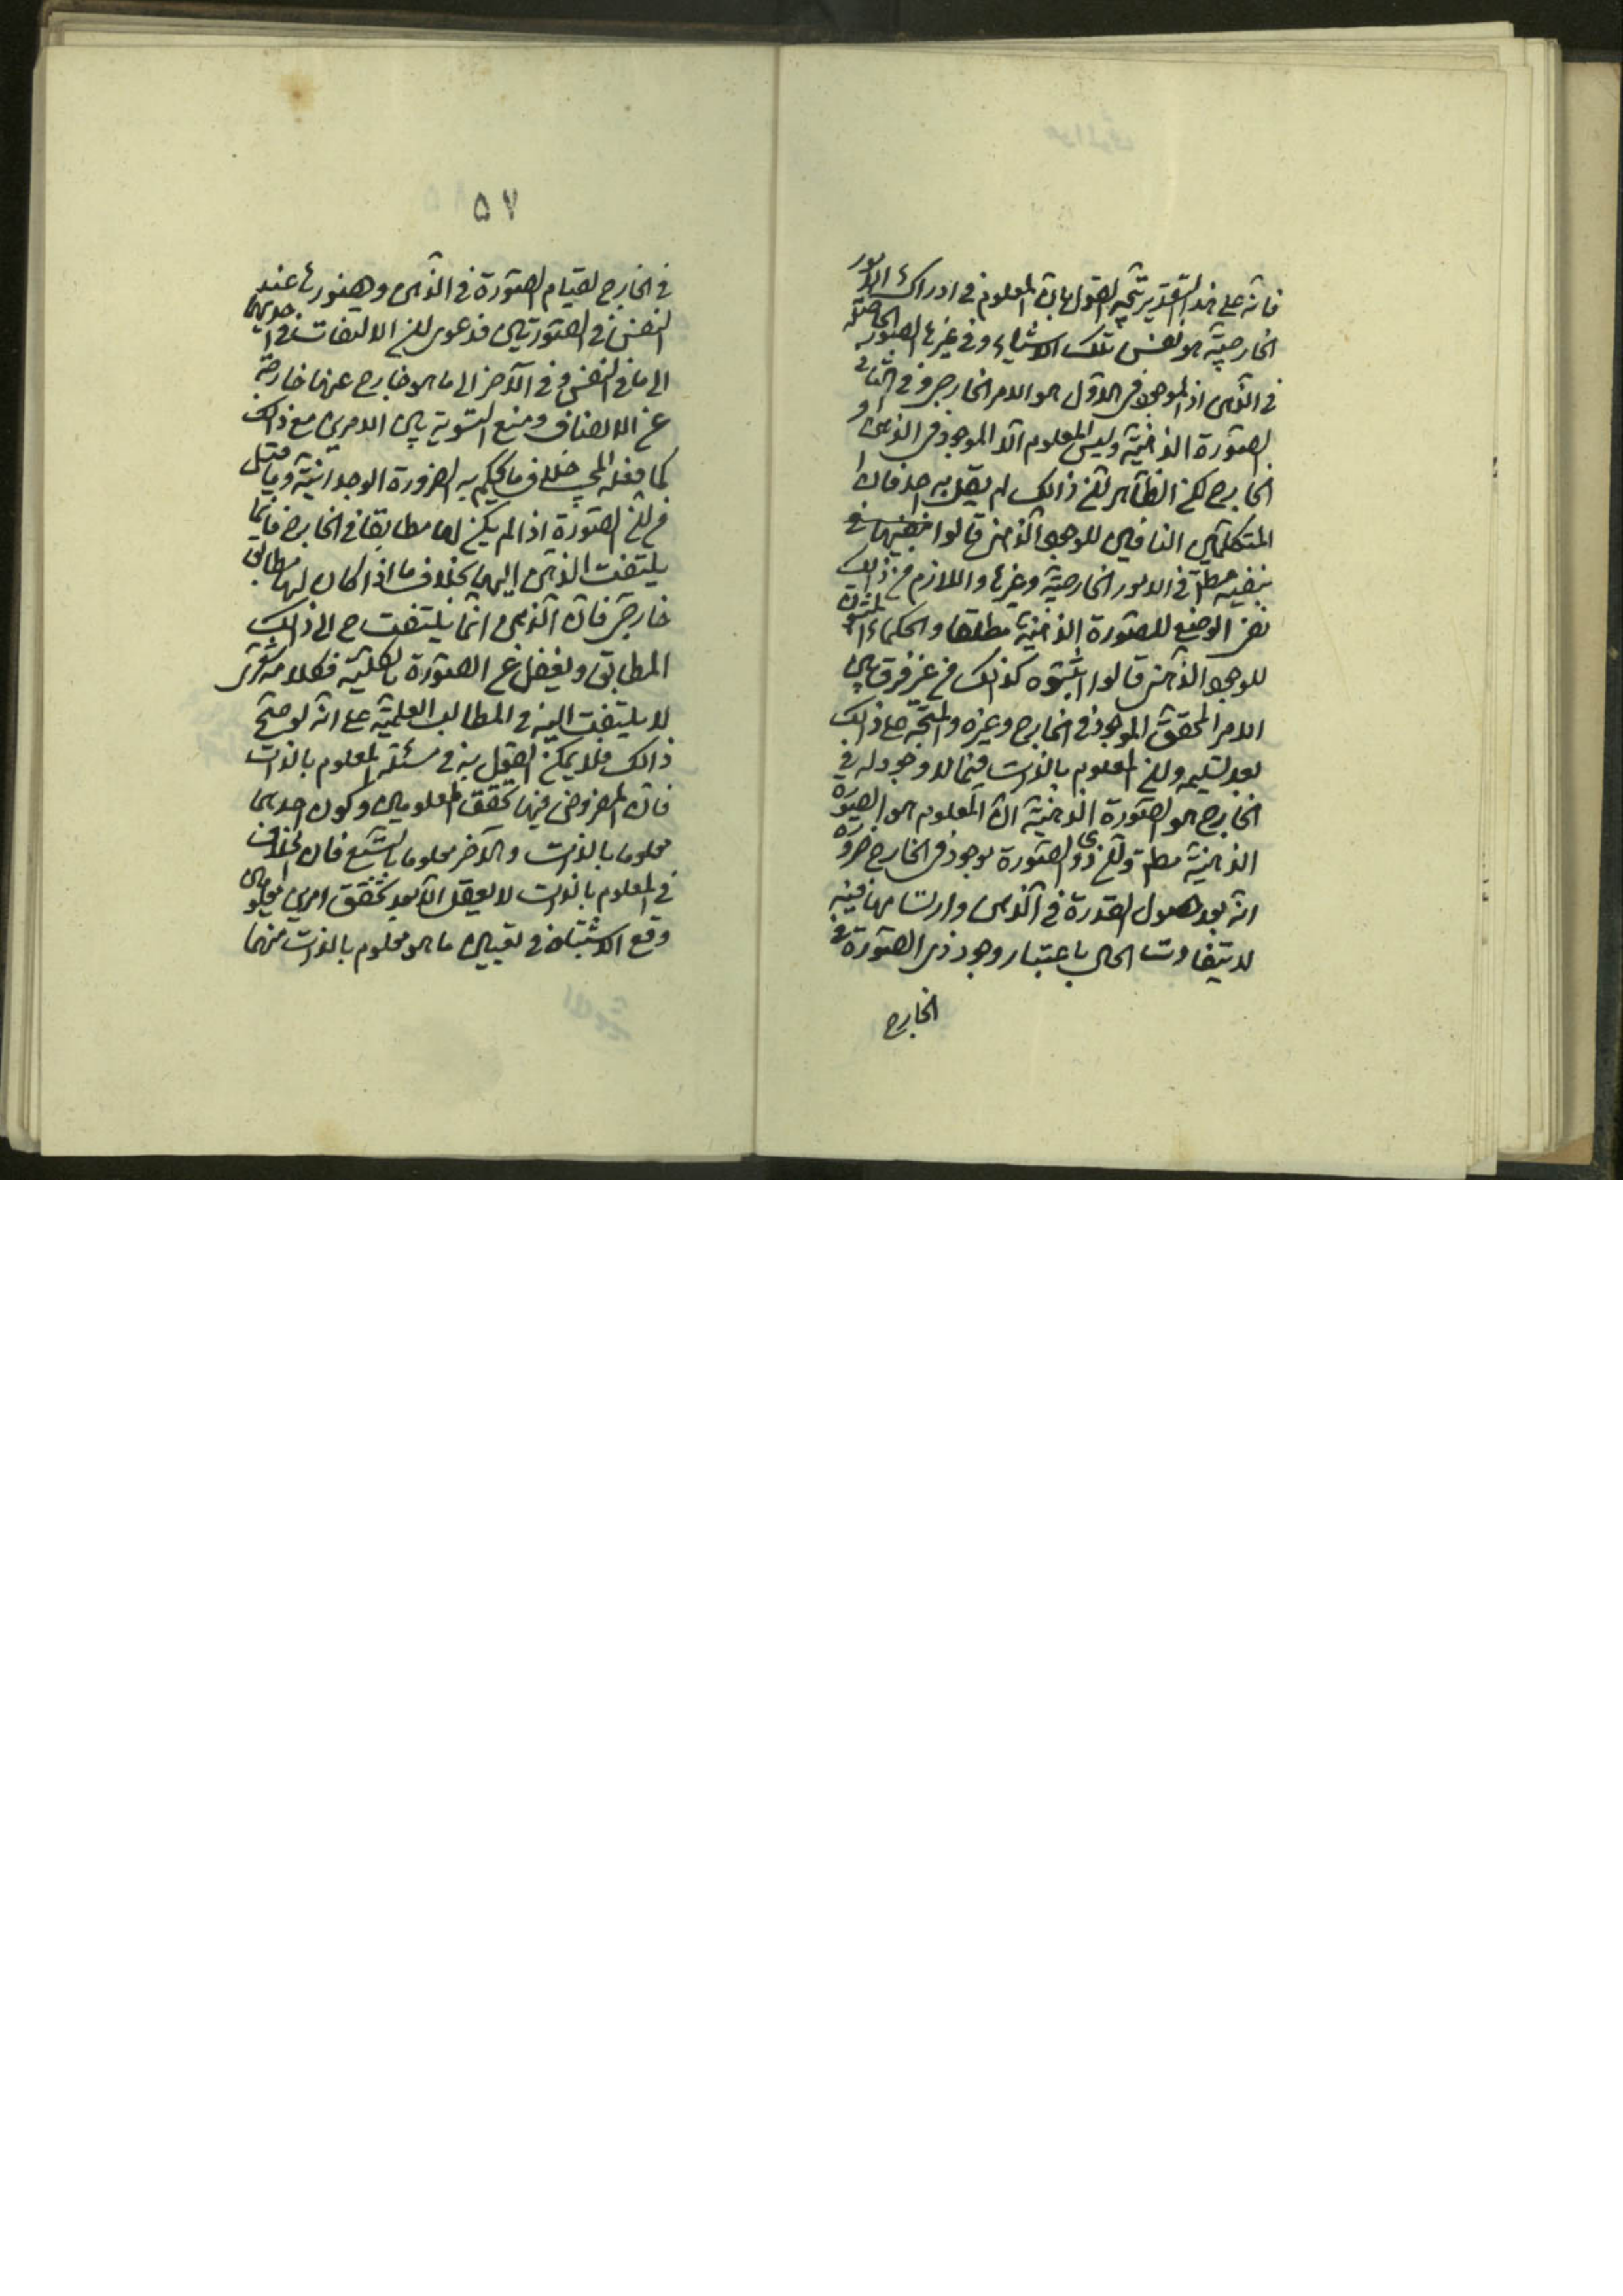 فانه على هذا التقدير يتجه القول بان المعلوم في ادراك الامور
الخارجية هو نفس تلك الاشياء وفي غيرها الصورة الحاصلة
في الذهن اذ الموجود في الاول هو الامر الخارجي وفي الثاني
الصورة الذهنية وليس المعلوم الا الموجود في الذهن او
الخارج لكن الظاهر ان ذالك لم يقل به احد فان
المتكلمين النافين للوجود الذهني قالوا
بنفيه مطلقا في الامور الخارجية وغيرها واللازم من ذالك
نفي الوضع للصورة الذهنية مطلقا والحكماء المثبتون
للوجود الذهني قالوا بثبوته كذلك من غير فرق بين
الامر المحقق الموجود في الخارج وغيره والمتجه على ذالك
بعد تسليم ان المعلوم بالذات فيما لا وجود له في
الخارج هو الصورة الذهنية ان المعلوم هو الصورة
الذهنية مطلقا وان ذوى الصورة موجود في الخارج ضرورة
انه بعد حصول الصورة في الذهن وارتسامها فيه
لا يتفاوت الحال باعتبار وجود ذي الصورة في
الخارج
٥٧
في الخارج لقيام الصورة في الذهن وحضورها عند
النفس في الصورتين فدعوى ان الالتفات في احديهما
الى ما في النفس وفي الآخر الى ما هو خارج عنها خارجة
عن الانصاف ومنع التسوية بين الامرين مع ذالك
كما فعله المجيب خلاف ما يحكم به الضرورة الوجدانية وما قيل
من ان الصورة اذا لم يكن لها مطابق في الخارج فانما
يلتفت الذهن اليها بخلاف ما اذا كان لها مطابق
خارجي فان الذهن انما يلتفت ح الى ذالك
المطابق ويغفل عن الصورة بالكلية فكلام شعري
لا يلتفت اليه في المطالب العلمية على انه لو صح
ذالك فلا يمكن القول به في مسئلة المعلوم بالذات
فان المفروض فيها تحقق المعلومين وكون احدهما
معلوما بالذات والآخر معلوما بالتبع فان الخلاف
في المعلوم بالذات لا يعقل الا بعد تحقق امرين معلومين
وقع الاشتباه في تعيين ما هو معلوم بالذات منهما